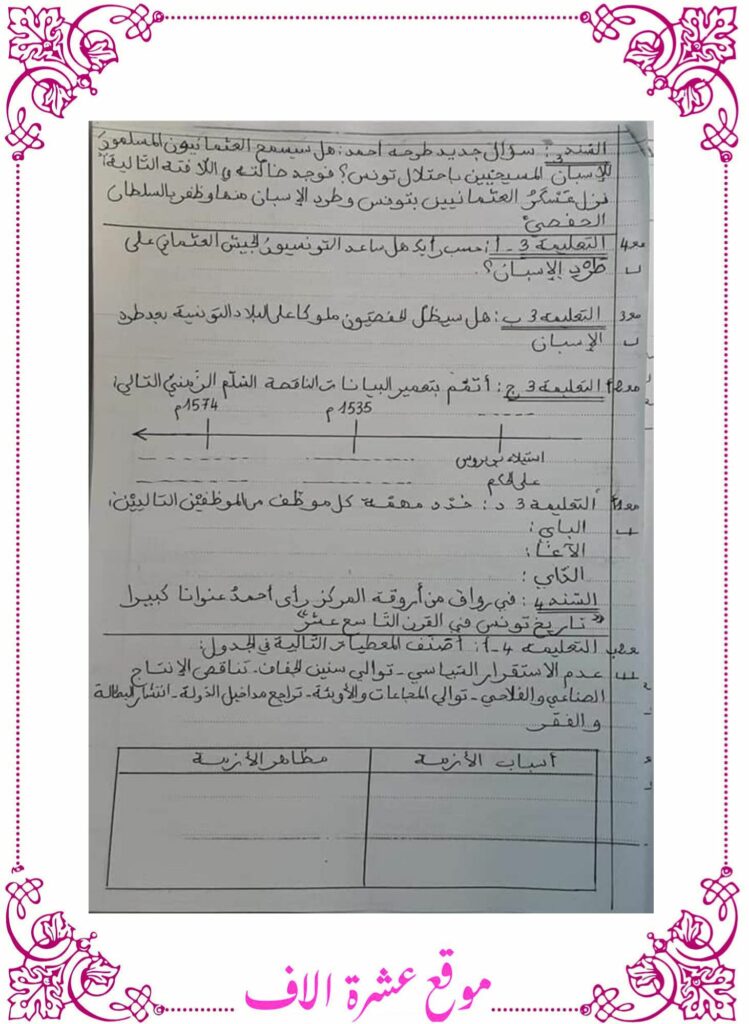 السّند 3: سؤال جديد طرحه أحمد: هل سيسمح العثمانيون المسلمون
للإسبان المسيحيين باحتلال تونس؟ فوجد ضالّته في اللافتة التالية:
نزل عَسْكَرُ العثمانيين بتونس وطرد الإسبان منها وظفر بالسلطان
الحفصيّ
مع4 التعليمة 3-أ: حسب رأيك هل ساعد التونسيون الجيش العثماني على
طرد الإسبان؟
مع3 التعليمة 3 ب: هل سيظلّ الحفصيّون ملوكا على البلاد التونسية بعد طرد
الإسبان
مع2أ التعليمة 3 ج: أتمّم بتعمير البيانات الناقصة السّلّم الزّمنيّ التالي:
1535م 1574م
استيلاء بربروس
على الحكم
التعليمة 3 د: حدّد مهمّة كلّ موظّف من الموظّفين التاليين:
الباي:
الآغا:
الدّاي:
السّند 4: في رواق من أروقة المركز رأى أحمدُ عنوانا كبيرا
"تاريخ تونس في القرن التّاسع عشر"
التعليمة 4-أ: أصنّف المعطيات التالية في الجدول:
عدم الاستقرار السّياسي - توالي سنين الجفاف - تناقص الإنتاج
الصناعي والفلاحي - توالي المجاعات والأوبئة - تراجع مداخيل الدّولة - انتشار البطالة
والفقر
أسباب الأزمة مظاهر الأزمة
موقع عشرة الاف